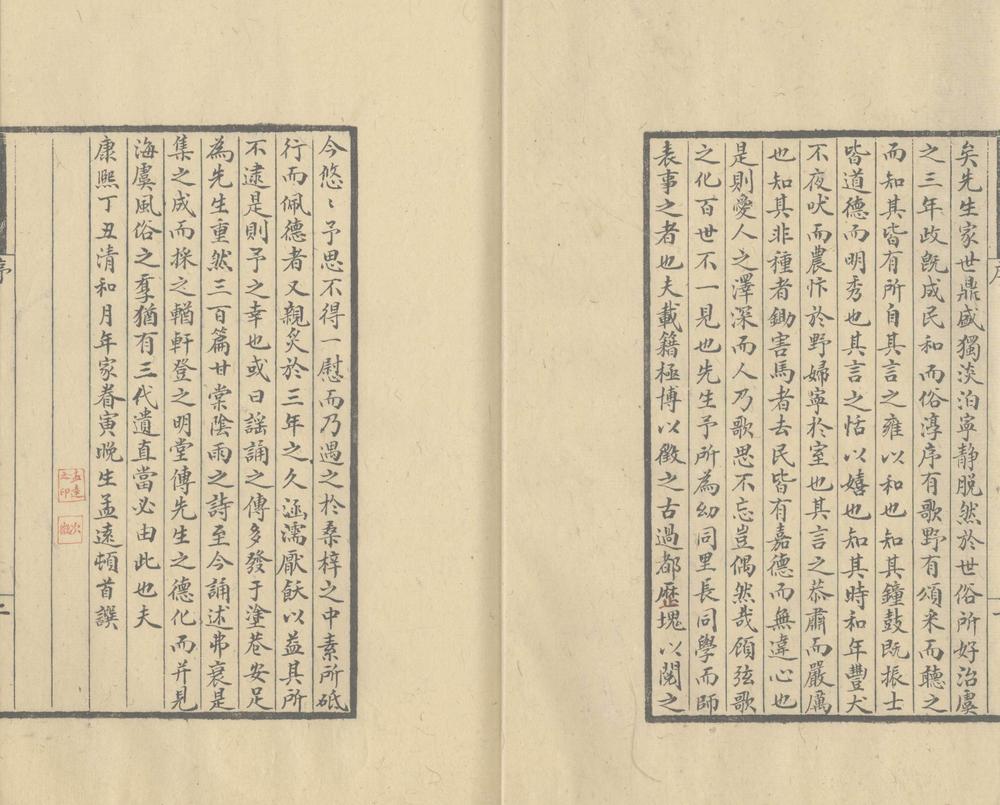 矣先生家世鼎盛獨淡泊寧静脱然於世俗所好治虞
之三年政旣成民和而俗淳序有歌野有頌釆而聽之
而知其皆有所自其言之雍以和也知其鐘鼓既振士
皆道德而明秀也其言之恬以嬉也知其時和年豐犬
不夜吠而農忭於野婦寧於室也其言之恭肅而嚴厲
也知其非種者鋤害馬者去民皆有嘉德而無違心也
是則愛人之澤深而人乃歌思不忘豈偶然哉顧弦歌
之化百世不一見也先生予所為幼同里長同學而師
表事之者也夫載籍極博以徵之古過都歷塊以閱之
今悠〻予思不得一慰而乃遇之於桑梓之中素所砥
行而佩德者又親炙於三年之久涵濡厭飫以益其所
不逮是則予之幸也或曰謡誦之傳多發于塗巷安足
為先生重然三百篇甘棠陰雨之詩至今誦述弗衰是
集之成而採之輶軒登之明堂傳先生之德化而幷見
海虞風俗之羣猶有三代遺直當必由此也夫
康熙丁丑清和月年家眷寅晚生孟遠頓首譔
孟遠之印
序
二